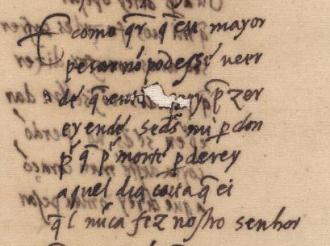 E como qr̃ q̃ eu mayor
pesar nõ podesse veer
de q̃ enton prazer
ey ende se ds̃ mi pdon
p̃ q̃ p mort̃ pderey
aquel dia coita q̃ ei
q̃l nũca fez nostro senhor